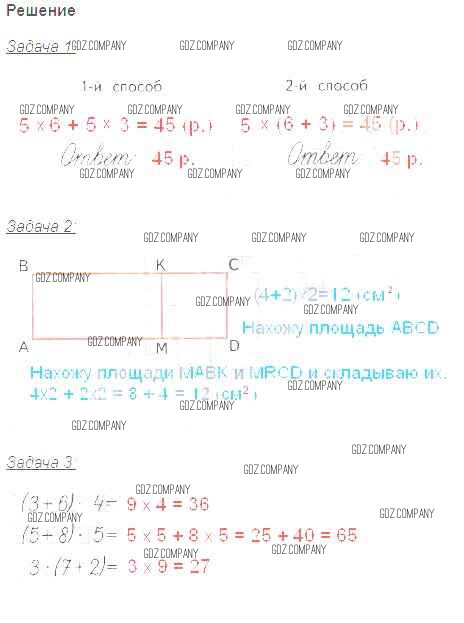 Решение
Задача 1 GDZ.COMPANY GDZ.COMPANY GDZ.COMPANY
1-й способ 2-й способ
GDZ.COMPANY GDZ.COMPANY GDZ.COMPANY GDZ.COMPANY
5 x 6 + 5 x 3 = 45 (р.) 5 x (6 + 3) = 45 (р.)
Ответ: 45 р. Ответ: 45 р.
GDZ.COMPANY GDZ.COMPANY GDZ.COMPANY GDZ.COMPANY
Задача 2:
GDZ.COMPANY GDZ.COMPANY GDZ.COMPANY
B K C
GDZ.COMPANY
(4+2) 2=12 (см²)
GDZ.COMPANY GDZ.COMPANY
Нахожу площадь ABCD
GDZ.COMPANY
A M D
Нахожу площади MABK и MRCD и складываю их.
4x2 + 2x2 = 8 + 4 = 12 (см²)
GDZ.COMPANY
GDZ.COMPANY
GDZ.COMPANY
Задача 3:
GDZ.COMPANY
GDZ.COMPANY
(3 + 6) · 4 = 9 x 4 = 36
GDZ.COMPANY GDZ.COMPANY
(5 + 8) · 5 = 5 x 5 + 8 x 5 = 25 + 40 = 65
GDZ.COMPANY GDZ.COMPANY
3 · (7 + 2) = 3 x 9 = 27
GDZ.COMPANY